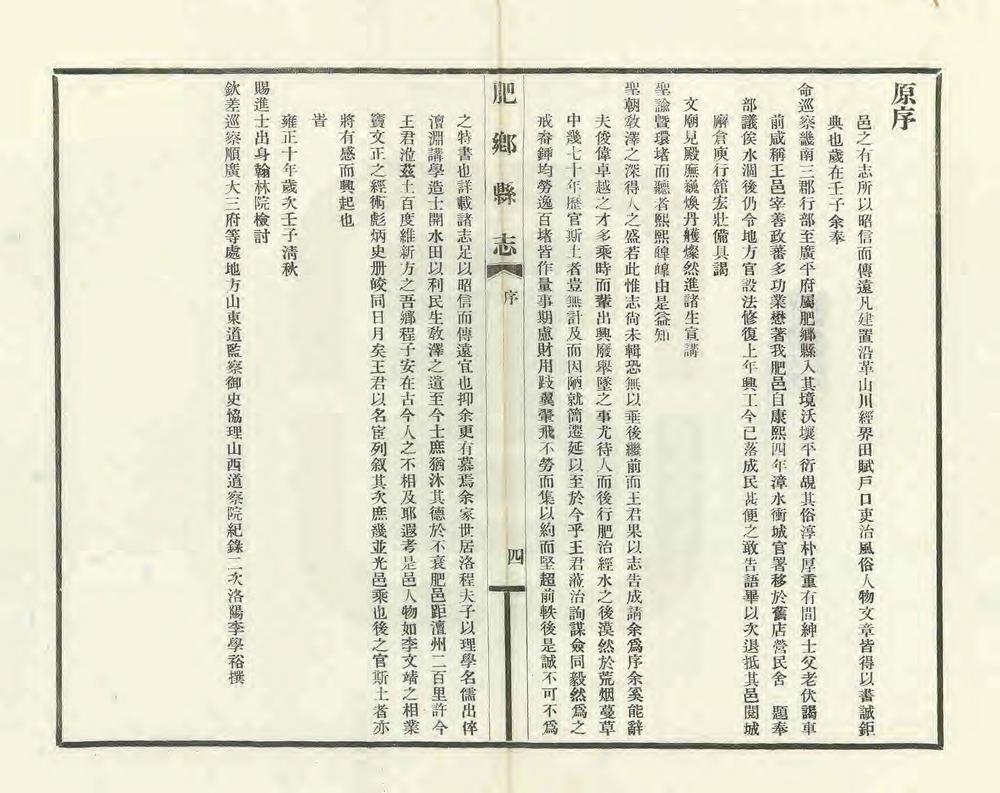 原序
邑之有志所以昭信而傳遠凡建置沿革山川經界田賦戶口吏治風俗人物文章皆得以書誠鉅
典也歲在壬子余奉
命巡察畿南三郡行部至廣平府屬肥鄉縣入其境沃壤平衍覘其俗淳朴厚重有間紳士父老伏謁車
前咸稱王邑宰善政蕃多功業懋著我肥邑自康熙四年漳水衝城官署移於舊店營民舍 題奉
部議俟水涸後仍令地方官設法修復上年興工今已落成民甚便之敢告語畢以次退抵其邑閱城
廨倉庾行舘宏壯備具謁
文廟見殿廡巍煥丹艧燦然進諸生宣講
聖諭暨環堵而聽者熙熙皥皥由是益知
聖朝敎澤之深得人之盛若此惟志尚未輯恐無以垂後繼前而王君果以志告成請余爲序余奚能辭
夫俊偉卓越之才多乘時而輩出興廢舉墜之事尤待人而後行肥治經水之後漠然於荒烟蔓草
中幾七十年歷官斯土者豈無計及而因陋就簡遷延以至於今乎王君蒞治詢謀僉同毅然爲之
戒畚鍤均勞逸百堵皆作量事期慮財用跂翼翬飛不勞而集以約而堅超前軼後是誠不可不爲
肥鄉縣志
序
四
之特書也詳載諸志足以昭信而傳遠宜也抑余更有慕焉余家世居洛程夫子以理學名儒出倅
澶淵講學造士開水田以利民生敎澤之遺至今士庶猶沐其德於不衰肥邑距澶州二百里許今
王君涖茲土百度維新方之吾鄉程子安在古今人之不相及耶遐考是邑人物如李文靖之相業
竇文正之經術彪炳史册皎同日月矣王君以名宦列叙其次庶幾並光邑乘也後之官斯土者亦
將有感而興起也
旹
雍正十年歲次壬子清秋
賜進士出身翰林院檢討
欽差巡察順廣大三府等處地方山東道監察御史恊理山西道察院紀錄二次洛陽李學裕撰